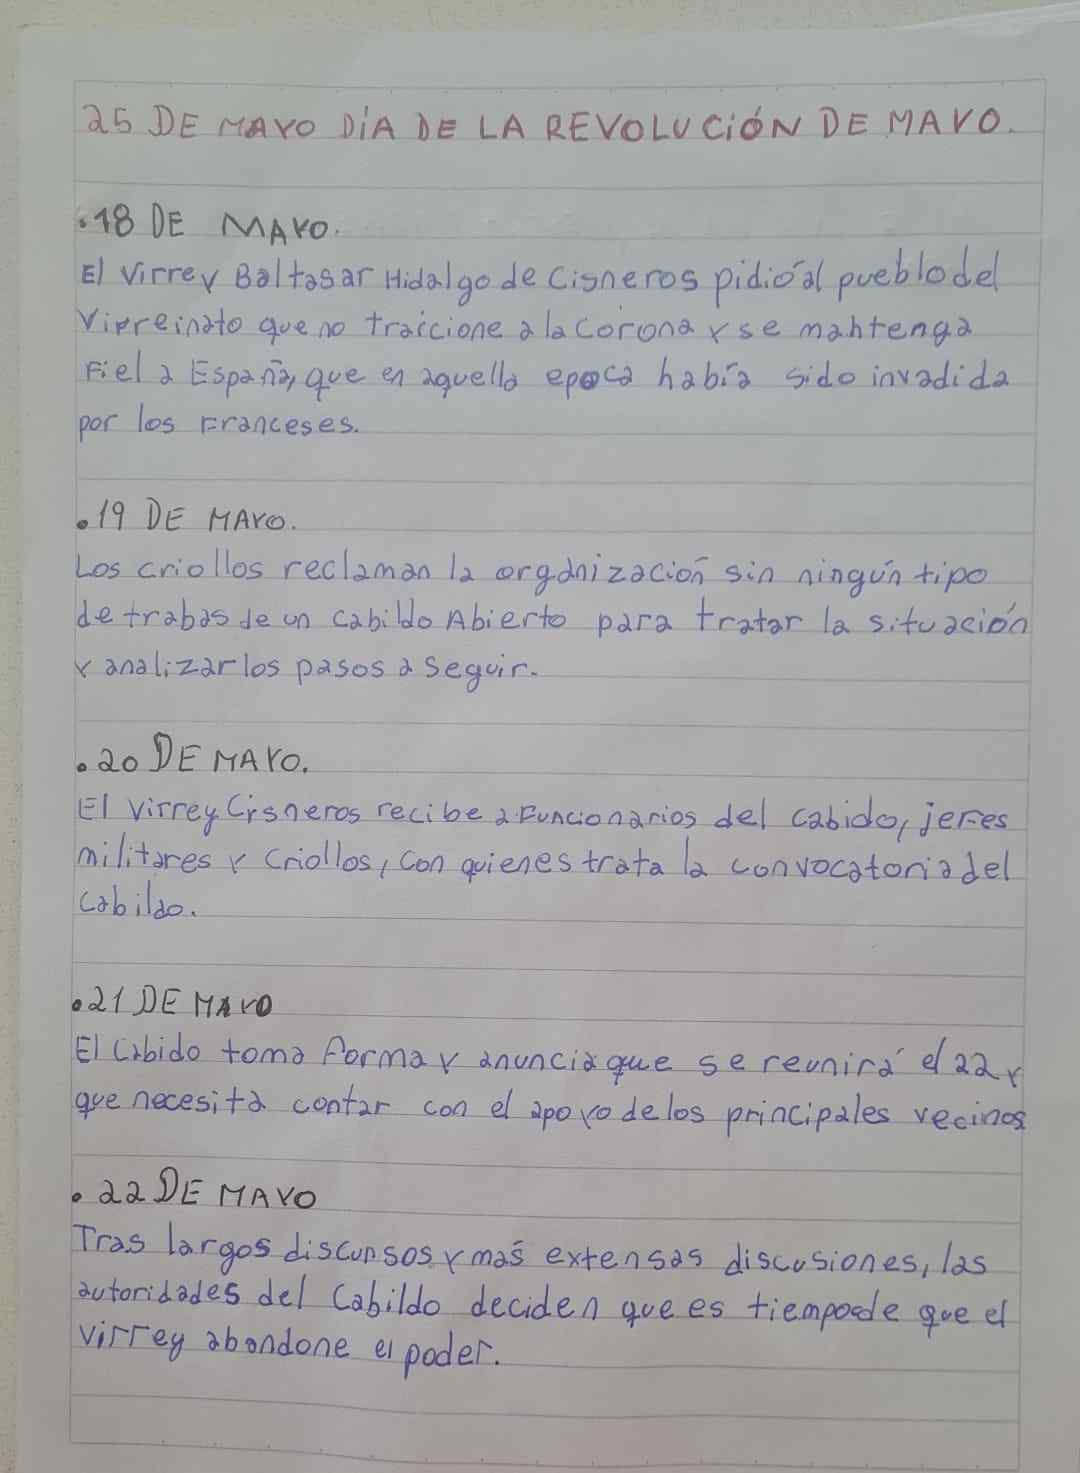 25 DE MAYO DÍA DE LA REVOLUCIÓN DE MAYO.
.18 DE MAYO.
El Virrey Baltasar Hidalgo de Cisneros pidió al pueblo del
Virreinato que no traicione a la Corona y se mantenga
Fiel a España, que en aquella epoca había sido invadida
por los Franceses.
.19 DE MAYO.
Los criollos reclaman la organización sin ningún tipo
de trabas de un Cabildo Abierto para tratar la situación
y analizar los pasos a seguir.
.20 DE MAYO.
El Virrey Cisneros recibe a Funcionarios del cabido, jefes
militares y Criollos, con quienes trata la convocatoria del
Cabildo.
.21 DE MAYO
El Cabido toma forma y anuncia que se reunirá el 22 y
que necesita contar con el apoyo de los principales vecinos
.22 DE MAYO
Tras largos discursos y más extensas discusiones, las
autoridades del Cabildo deciden que es tiempo de que el
virrey abandone el poder.